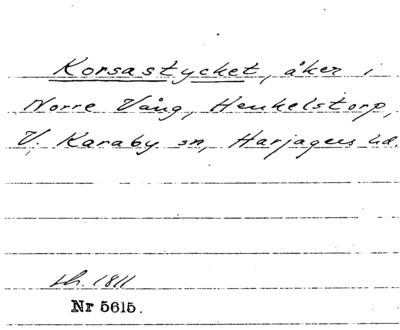 Korsastycket, åker i
Norre Vång, Henkelstorp,
V. Karaby sn, Harjagers hd.
sk. 1811
Nr 5615.